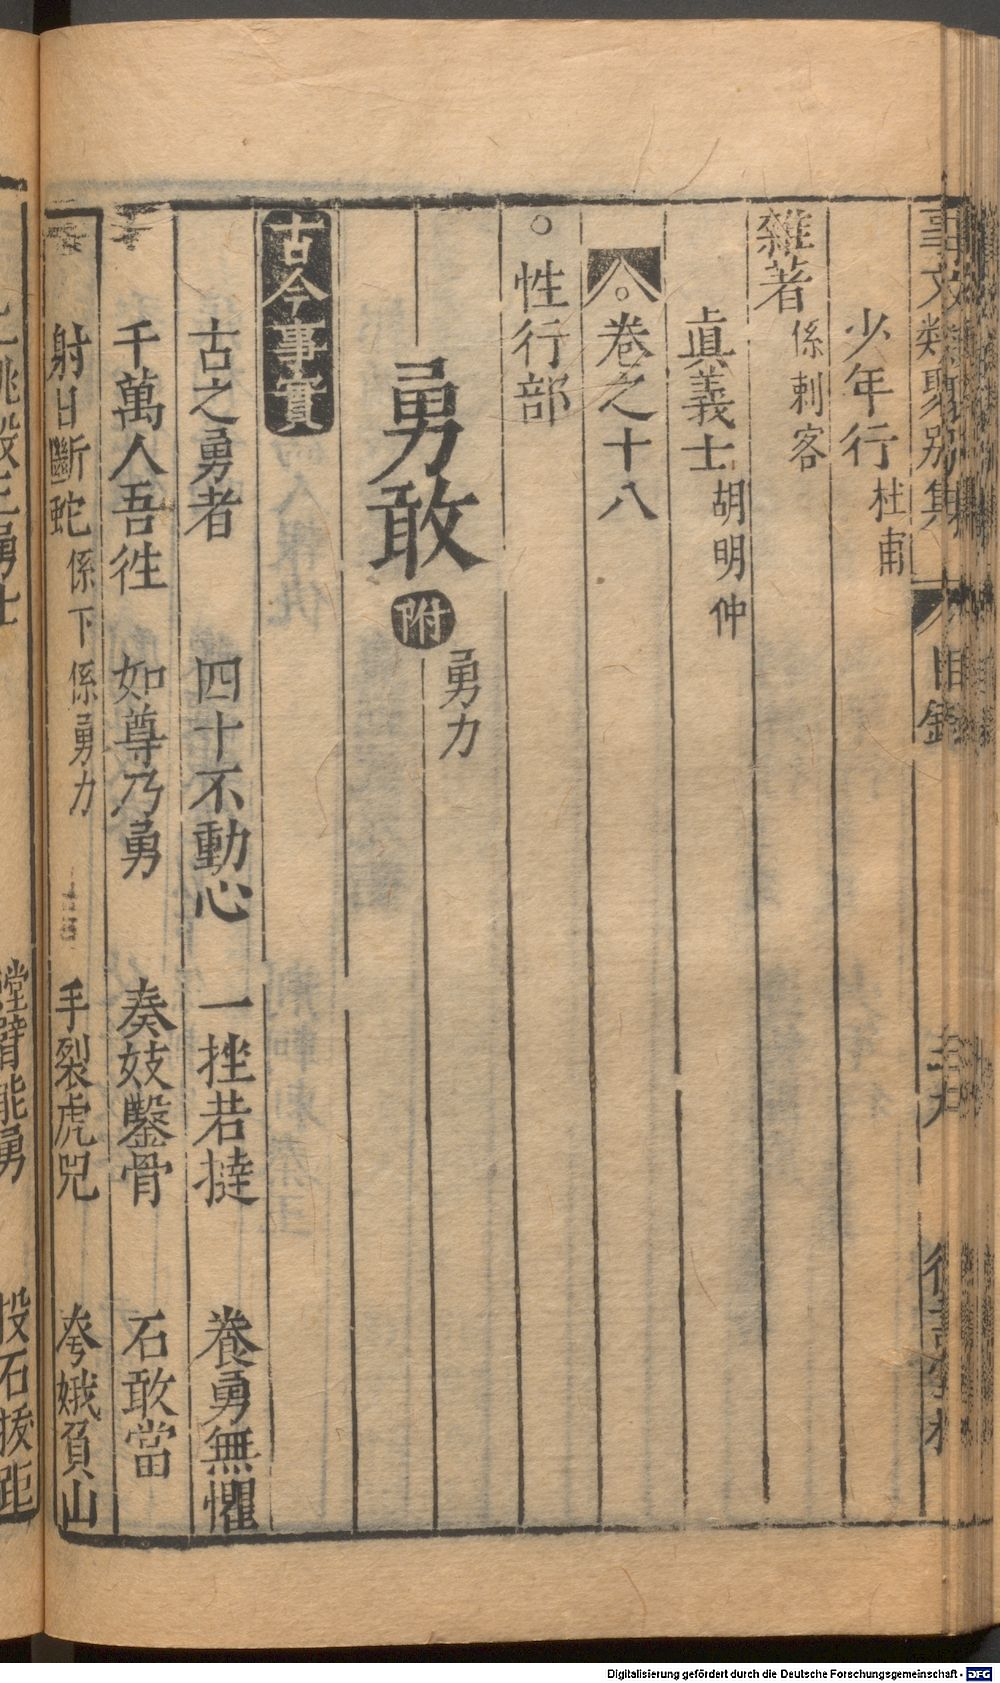 事文類聚別集 目錄
少年行 杜甫
雜著 係刺客
眞義士 胡明仲
○卷之十八
○性行部
勇敢 附 勇力
古今事實
古之勇者 四十不動心 一挫若撻 養勇無懼
千萬人吾徃 如尊乃勇 奏妓鑿骨 石敢當
射日斷蛇 係下係勇力 手裂虎兕 夸娥負山
螳臂能勇 投石拔距
Digitalisierung gefördert durch die Deutsche Forschungsgemeinschaft - DFG